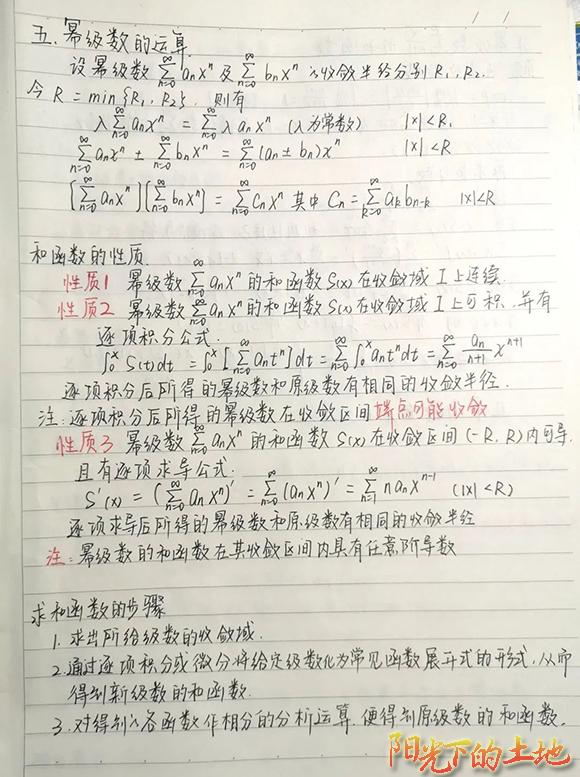 五. 幂级数的运算
设幂级数 ∑_{n=0}^{∞} aₙxⁿ 及 ∑_{n=0}^{∞} bₙxⁿ 的收敛半径分别 R₁, R₂.
令 R = min{R₁, R₂}, 则有
λ∑_{n=0}^{∞} aₙxⁿ = ∑_{n=0}^{∞} λaₙxⁿ (λ为常数) |x|<R₁
∑_{n=0}^{∞} aₙxⁿ ± ∑_{n=0}^{∞} bₙxⁿ = ∑_{n=0}^{∞} (aₙ±bₙ)xⁿ |x|<R
[∑_{n=0}^{∞} aₙxⁿ][∑_{n=0}^{∞} bₙxⁿ] = ∑_{n=0}^{∞} Cₙxⁿ 其中 Cₙ = ∑_{k=0}^{∞} aₖbₙ₋ₖ |x|<R
和函数的性质.
性质1 幂级数 ∑_{n=0}^{∞} aₙxⁿ 的和函数 S(x) 在收敛域 I 上连续.
性质2 幂级数 ∑_{n=0}^{∞} aₙxⁿ 的和函数 S(x) 在收敛域 I 上可积, 并有
逐项积分公式.
∫₀ˣ S(t)dt = ∫₀ˣ [∑_{n=0}^{∞} aₙtⁿ]dt = ∑_{n=0}^{∞} ∫₀ˣ aₙtⁿdt = ∑_{n=0}^{∞} aₙ/(n+1) xⁿ⁺¹
逐项积分后所得的幂级数和原级数有相同的收敛半径.
注: 逐项积分后所得的幂级数在收敛区间端点可能收敛
性质3 幂级数 ∑_{n=0}^{∞} aₙxⁿ 的和函数 S(x) 在收敛区间 (-R, R) 内可导.
且有逐项求导公式:
S'(x) = (∑_{n=0}^{∞} aₙxⁿ)' = ∑_{n=0}^{∞} (aₙxⁿ)' = ∑_{n=1}^{∞} naₙxⁿ⁻¹ (|x|<R)
逐项求导后所得的幂级数和原级数有相同的收敛半径
注: 幂级数的和函数在其收敛区间内具有任意阶导数
求和函数的步骤
1. 求出所给级数的收敛域.
2. 通过逐项积分或微分将给定级数化为常见函数展开式的形式, 从而
得到新级数的和函数.
3. 对得到的各函数作相分的分析运算. 便得到原级数的和函数.
阳光下的土地